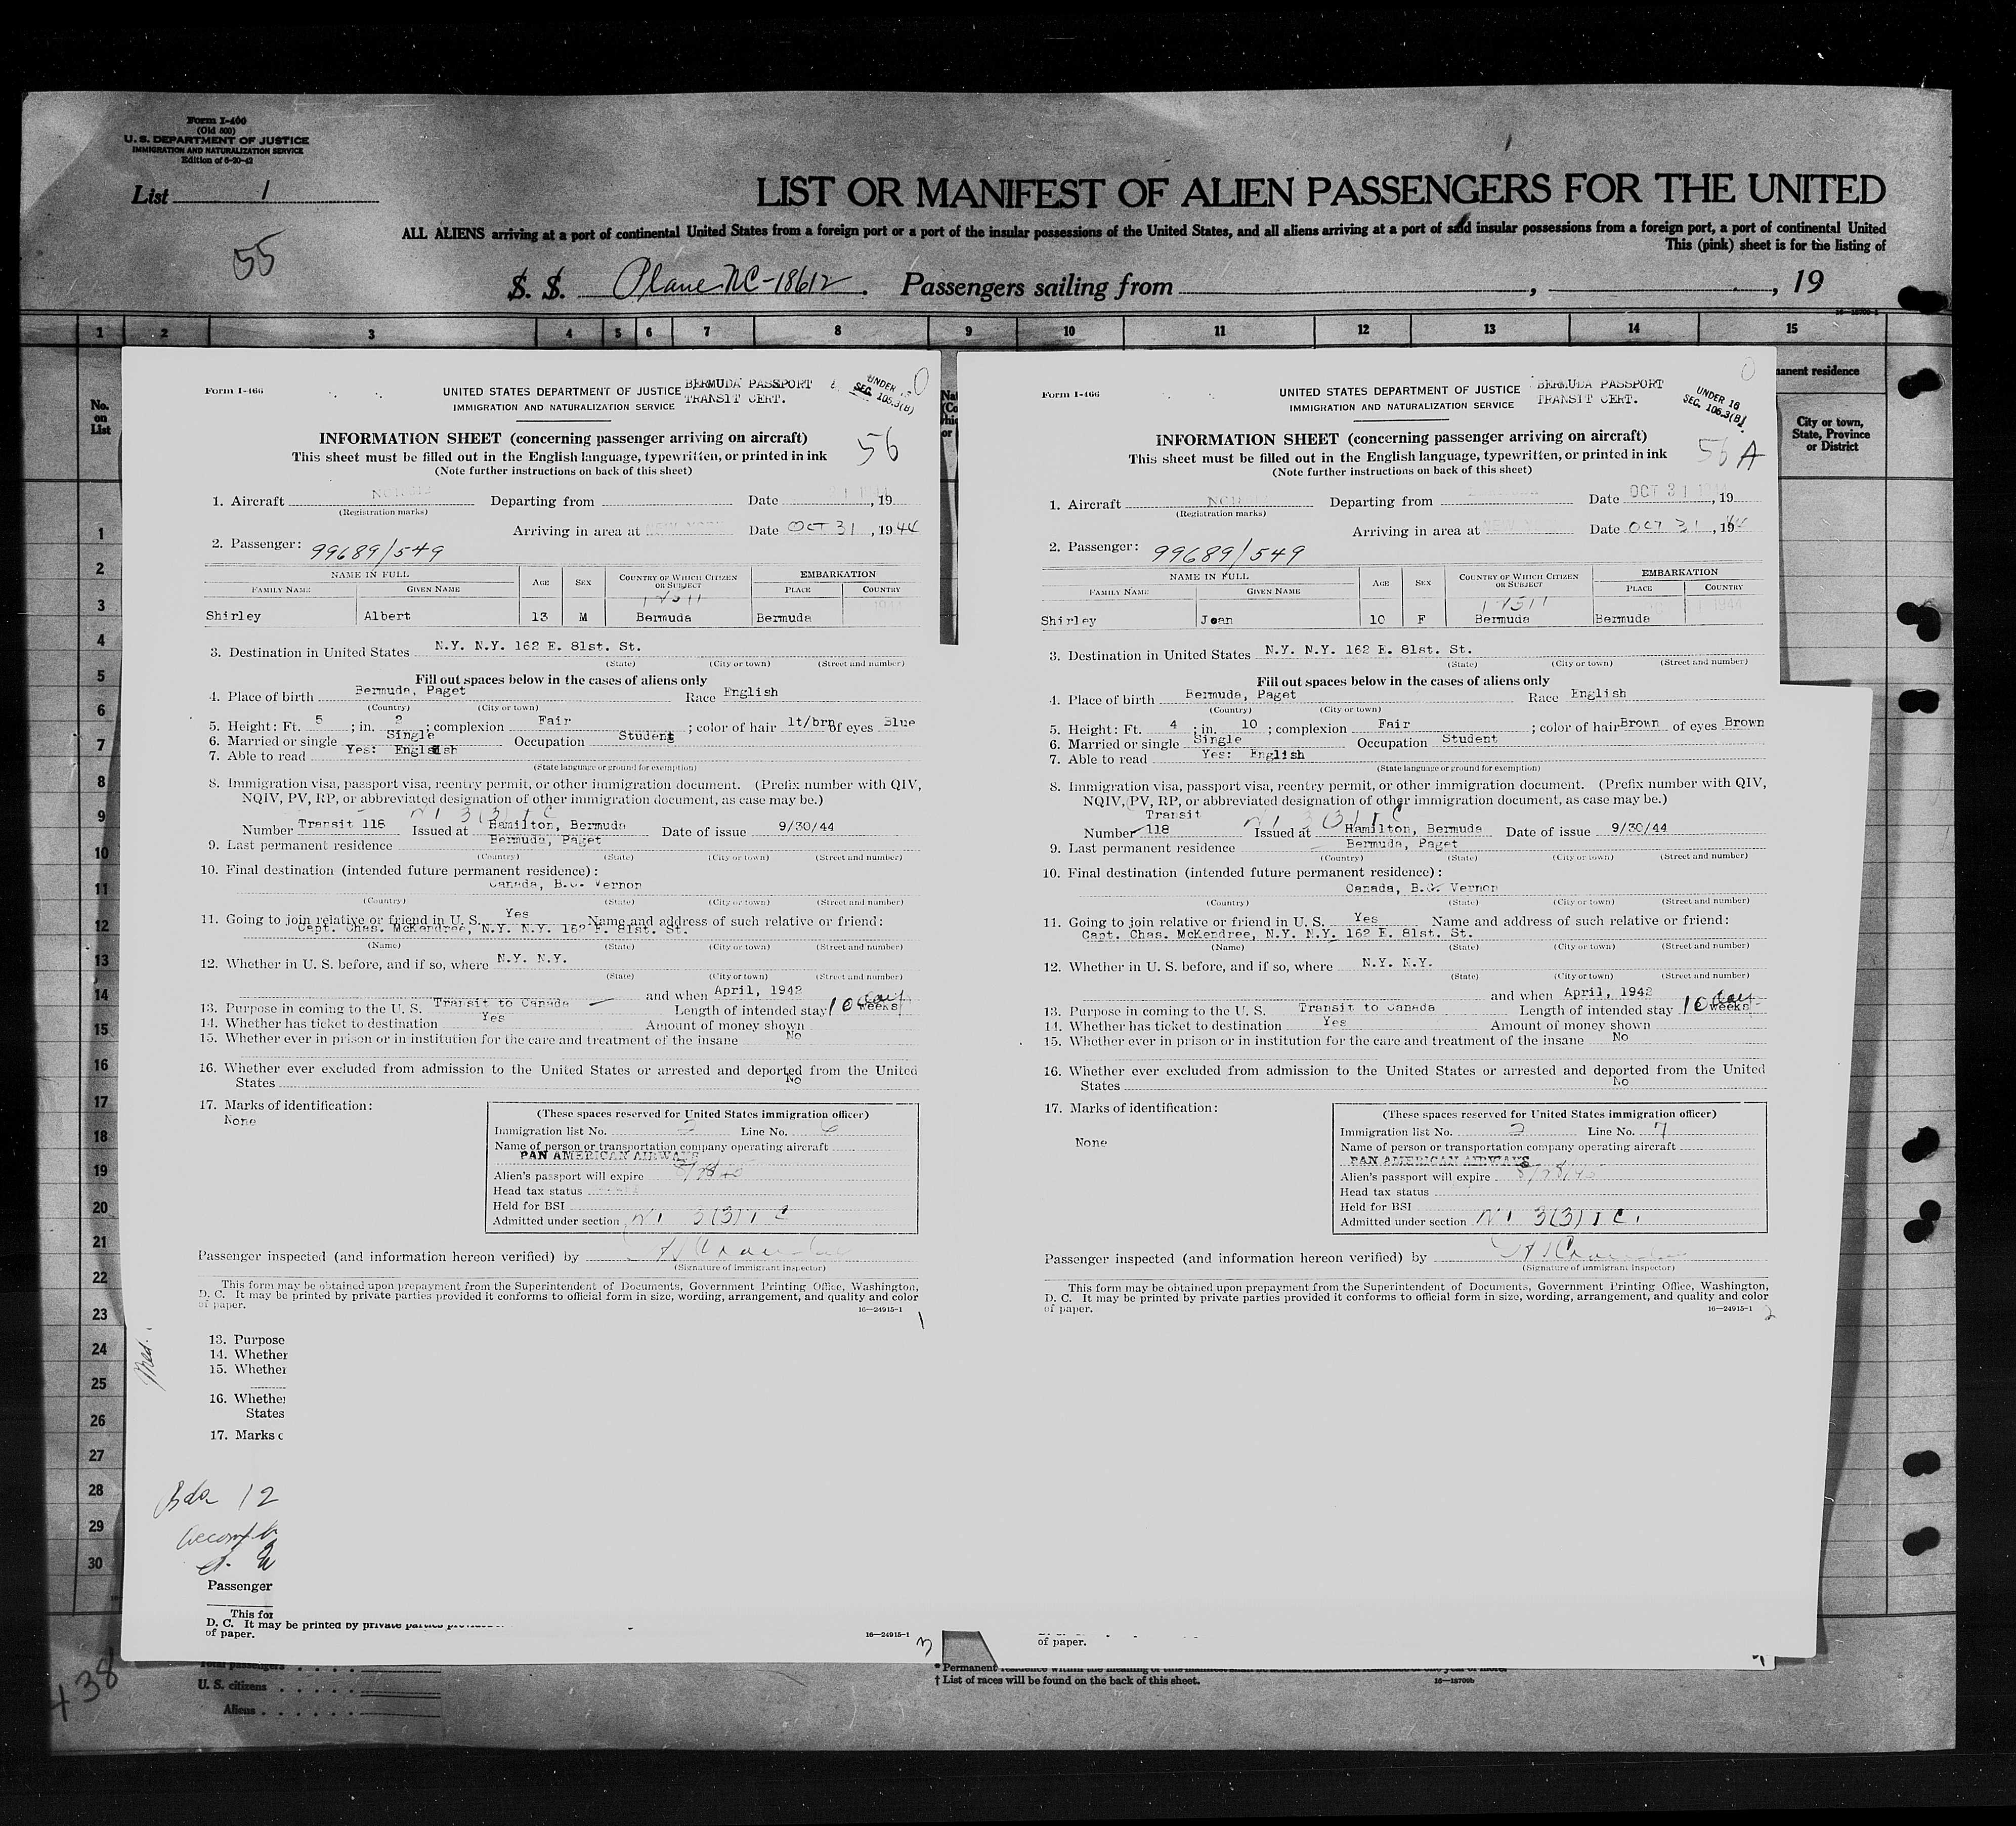 Form I-466
(Old 500)
U. S. DEPARTMENT OF JUSTICE
IMMIGRATION AND NATURALIZATION SERVICE
Edition of 6-20-42
List 1
55
LIST OR MANIFEST OF ALIEN PASSENGERS FOR THE UNITED
ALL ALIENS arriving at a port of continental United States from a foreign port or a port of the insular possessions of the United States, and all aliens arriving at a port of said insular possessions from a foreign port, a port of continental United
This (pink) sheet is for the listing of
S. S. Plane NC-18612. Passengers sailing from , , 19
1 2 3 4 5 6 7 8 9 10 11 12 13 14 15
No. on List
anent residence
City or town, State, Province or District
1
2
3
4
5
6
7
8
9
10
11
12
13
14
15
16
17
18
19
20
21
22
23
24
25
26
27
28
29
30
Form I-466
UNITED STATES DEPARTMENT OF JUSTICE
IMMIGRATION AND NATURALIZATION SERVICE
BERMUDA PASSPORT
TRANSIT CERT.
UNDER
SEC. 105.3(B)
0
56
INFORMATION SHEET (concerning passenger arriving on aircraft)
This sheet must be filled out in the English language, typewritten, or printed in ink
(Note further instructions on back of this sheet)
1. Aircraft Departing from Date , 19
(Registration marks)
Arriving in area at Date OCT 31, 1944
2. Passenger: 99689/549
NAME IN FULL AGE SEX COUNTRY OF WHICH CITIZEN OR SUBJECT EMBARKATION
FAMILY NAME GIVEN NAME PLACE COUNTRY
Shirley Albert 13 M Bermuda Bermuda
3. Destination in United States N.Y. N.Y. 162 E. 81st. St.
(State) (City or town) (Street and number)
Fill out spaces below in the cases of aliens only
4. Place of birth Bermuda, Paget Race English
(Country) (City or town)
5. Height: Ft. 5 ; in. 2 ; complexion Fair ; color of hair lt/brn of eyes Blue
6. Married or single Single Occupation Student
7. Able to read Yes: English
(State language or ground for exemption)
8. Immigration visa, passport visa, reentry permit, or other immigration document. (Prefix number with QIV,
NQIV, PV, RP, or abbreviated designation of other immigration document, as case may be.)
Number Transit 118 Issued at Hamilton, Bermuda Date of issue 9/30/44
9. Last permanent residence Bermuda, Paget
(Country) (State) (City or town) (Street and number)
10. Final destination (intended future permanent residence):
Canada, B.C. Vernon
(Country) (State) (City or town) (Street and number)
11. Going to join relative or friend in U. S. Yes Name and address of such relative or friend:
Capt. Chas. McKendree, N.Y. N.Y. 162 E. 81st. St.
(Name) (State) (City or town) (Street and number)
12. Whether in U. S. before, and if so, where N.Y. N.Y.
(State) (City or town) (Street and number)
and when April, 1942
13. Purpose in coming to the U. S. Transit to Canada Length of intended stay 10 days weeks
14. Whether has ticket to destination Yes Amount of money shown
15. Whether ever in prison or in institution for the care and treatment of the insane No
16. Whether ever excluded from admission to the United States or arrested and deported from the United
States No
17. Marks of identification:
None
(These spaces reserved for United States immigration officer)
Immigration list No. 2 Line No. 6
Name of person or transportation company operating aircraft
PAN AMERICAN AIRWAYS
Alien's passport will expire
Head tax status
Held for BSI
Admitted under section N I 3(3) T C
Passenger inspected (and information hereon verified) by
(Signature of immigrant inspector)
This form may be obtained upon prepayment from the Superintendent of Documents, Government Printing Office, Washington,
D. C. It may be printed by private parties provided it conforms to official form in size, wording, arrangement, and quality and color
of paper.
16—24915-1
1
Form I-466
UNITED STATES DEPARTMENT OF JUSTICE
IMMIGRATION AND NATURALIZATION SERVICE
BERMUDA PASSPORT
TRANSIT CERT.
UNDER 16
SEC. 105.3(B)
0
56 A
INFORMATION SHEET (concerning passenger arriving on aircraft)
This sheet must be filled out in the English language, typewritten, or printed in ink
(Note further instructions on back of this sheet)
1. Aircraft Departing from Date OCT 31 1944, 19
(Registration marks)
Arriving in area at Date OCT 31, 1944
2. Passenger: 99689/549
NAME IN FULL AGE SEX COUNTRY OF WHICH CITIZEN OR SUBJECT EMBARKATION
FAMILY NAME GIVEN NAME PLACE COUNTRY
Shirley Jean 10 F Bermuda Bermuda
3. Destination in United States N.Y. N.Y. 162 E. 81st. St.
(State) (City or town) (Street and number)
Fill out spaces below in the cases of aliens only
4. Place of birth Bermuda, Paget Race English
(Country) (City or town)
5. Height: Ft. 4 ; in. 10 ; complexion Fair ; color of hair Brown of eyes Brown
6. Married or single Single Occupation Student
7. Able to read Yes: English
(State language or ground for exemption)
8. Immigration visa, passport visa, reentry permit, or other immigration document. (Prefix number with QIV,
NQIV, PV, RP, or abbreviated designation of other immigration document, as case may be.)
Transit
Number 118 Issued at Hamilton, Bermuda Date of issue 9/30/44
9. Last permanent residence Bermuda, Paget
(Country) (State) (City or town) (Street and number)
10. Final destination (intended future permanent residence):
Canada, B.C. Vernon
(Country) (State) (City or town) (Street and number)
11. Going to join relative or friend in U. S. Yes Name and address of such relative or friend:
Capt. Chas. McKendree, N.Y. N.Y. 162 E. 81st. St.
(Name) (State) (City or town) (Street and number)
12. Whether in U. S. before, and if so, where N.Y. N.Y.
(State) (City or town) (Street and number)
and when April, 1942
13. Purpose in coming to the U. S. Transit to Canada Length of intended stay 10 days weeks
14. Whether has ticket to destination Yes Amount of money shown
15. Whether ever in prison or in institution for the care and treatment of the insane No
16. Whether ever excluded from admission to the United States or arrested and deported from the United
States No
17. Marks of identification:
None
(These spaces reserved for United States immigration officer)
Immigration list No. 2 Line No. 7
Name of person or transportation company operating aircraft
PAN AMERICAN AIRWAYS
Alien's passport will expire
Head tax status
Held for BSI
Admitted under section N I 3(3) T C
Passenger inspected (and information hereon verified) by
(Signature of immigrant inspector)
This form may be obtained upon prepayment from the Superintendent of Documents, Government Printing Office, Washington,
D. C. It may be printed by private parties provided it conforms to official form in size, wording, arrangement, and quality and color
of paper.
16—24915-1
2
Med.
13. Purpose
14. Whether
15. Whether
16. Whether
States
17. Marks
Bda 12
Passenger
This for
D. C. It may be printed by private parties
of paper.
16—24915-1
3
of paper.
438
Total passengers
U. S. citizens
Aliens
* Permanent residence within the meaning of this manifest
† List of races will be found on the back of this sheet.
16—18700b